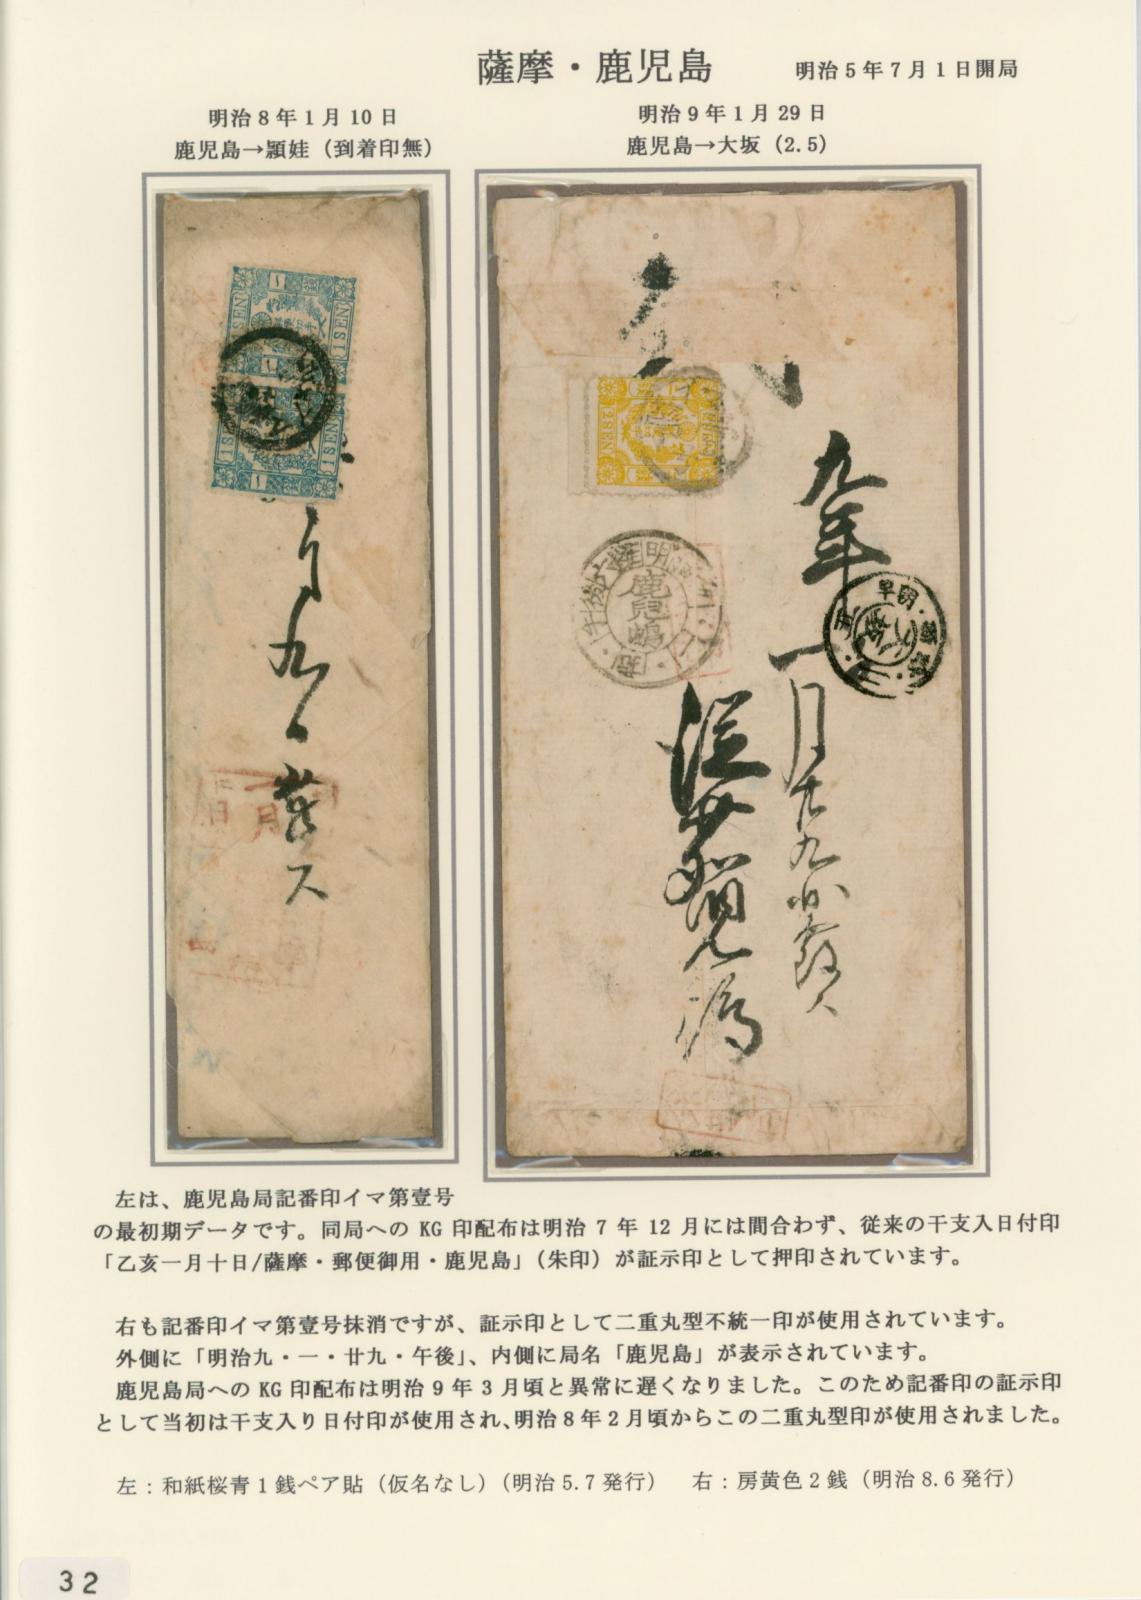 薩摩・鹿児島
明治5年7月1日開局
明治8年1月10日
鹿児島→頴娃（到着印無）
明治9年1月29日
鹿児島→大坂（2.5）
1SEN
1SEN
1SEN
1SEN
月
日
2SEN
2SEN
九年
一月廿九
鹿児嶋
左は、鹿児島局記番印イマ第壹号
の最初期データです。同局へのKG印配布は明治7年12月には間合わず、従来の干支入日付印
「乙亥一月十日/薩摩・郵便御用・鹿児島」（朱印）が証示印として押印されています。
右も記番印イマ第壹号抹消ですが、証示印として二重丸型不統一印が使用されています。
外側に「明治九・一・廿九・午後」、内側に局名「鹿児島」が表示されています。
鹿児島局へのKG印配布は明治9年3月頃と異常に遅くなりました。このため記番印の証示印
として当初は干支入り日付印が使用され、明治8年2月頃からこの二重丸型印が使用されました。
左：和紙桜青1銭ペア貼（仮名なし）（明治5.7発行）　右：房黄色2銭（明治8.6発行）
32